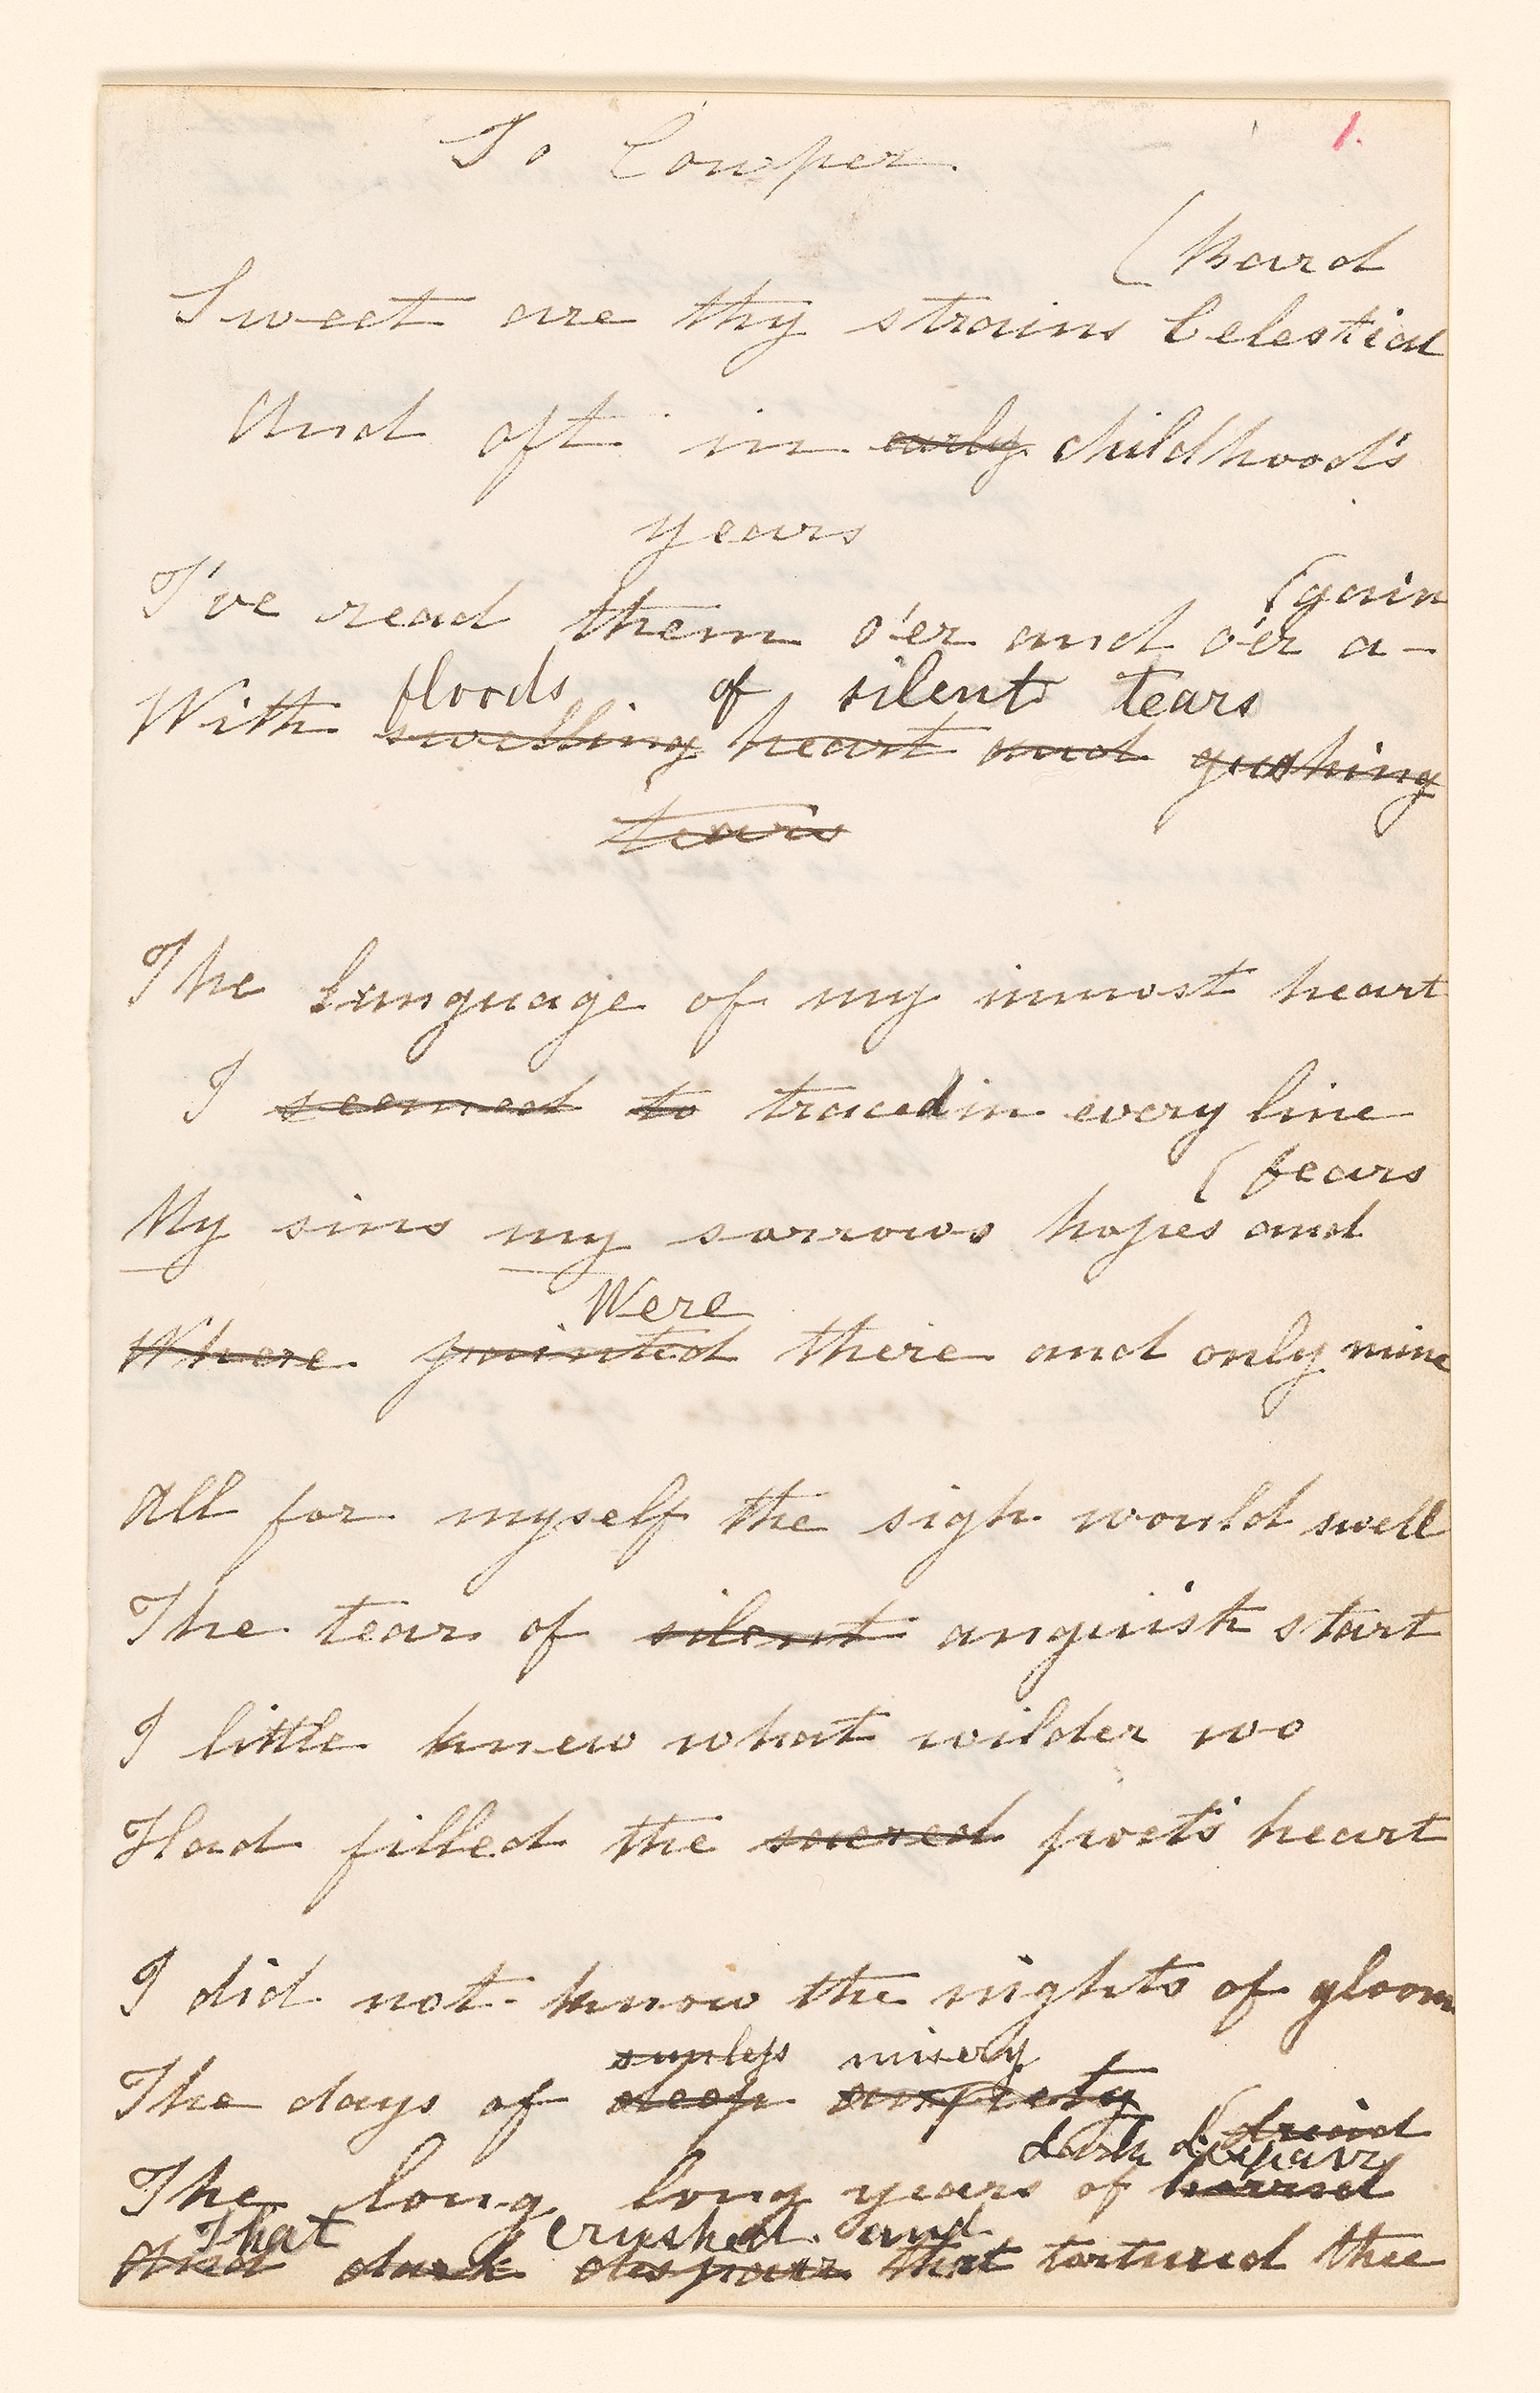 To Cowper.
1.
(Bard
Sweet are thy strains Celestial
And oft in early childhood's
years
I've read them o'er and o'er a-
(gain
floods of silent tears
With swelling heart and gushing
tears
The Language of my inmost heart
I seemed to traced in every line
(fears
My sins my sorrows hopes and
Were
Where painted there and only mine
All for myself the sigh would swell
The tear of silent anguish start
I little knew what wilder wo
Had filled the sacred poet's heart
I did not know the nights of gloom
sunless misery
The days of deep
dark despair
The long long years of horrid
That crushed and
And dark despair that tortured thee